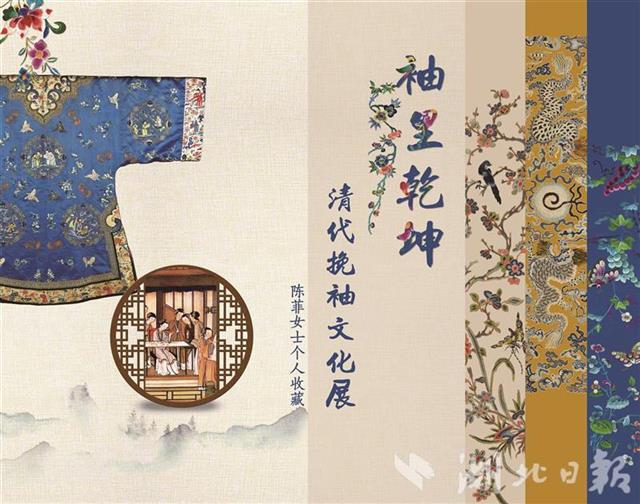 袖里乾坤
清代挽袖文化展
陈菲女士个人收藏
湖北日報